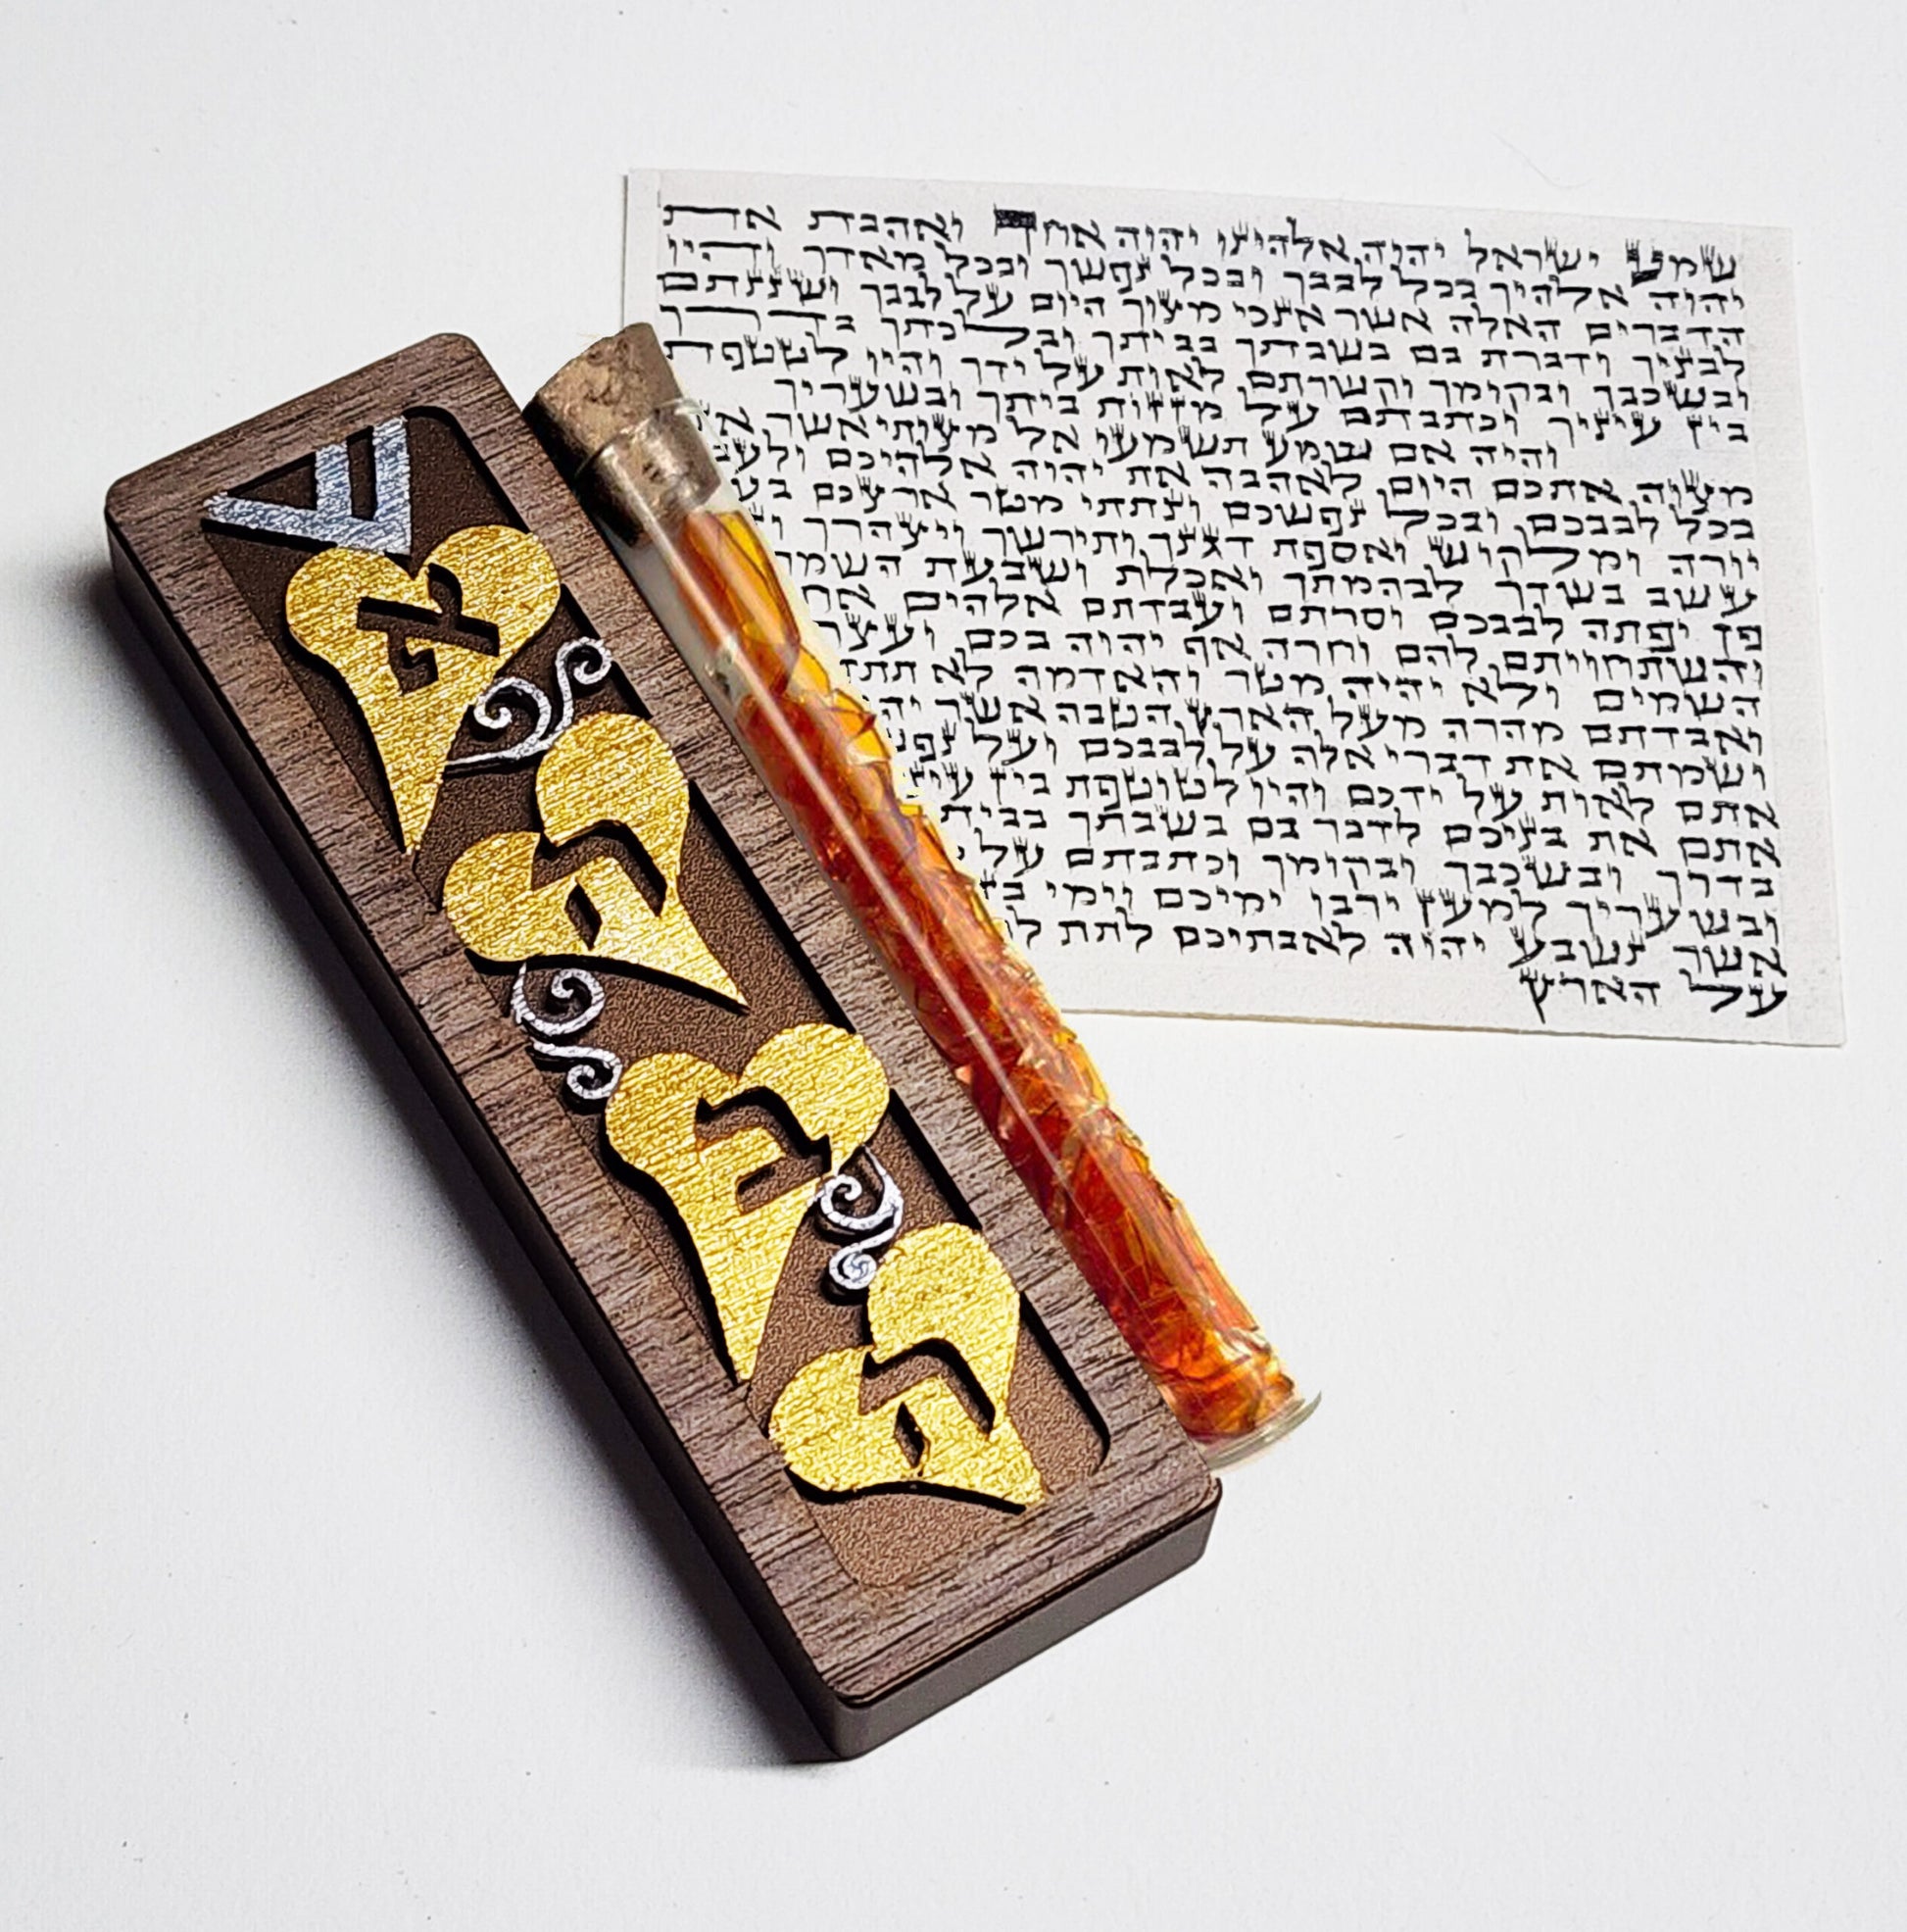 ש
א
ה
ב
ה
שמע ישראל יהוה אלהינו יהוה אחד ואהבת את
יהוה אלהיך בכל לבבך ובכל נפשך ובכל מאדך והיו
הדברים האלה אשר אנכי מצוך היום על לבבך ושננתם
לבניך ודברת בם בשבתך בביתך ובלכתך בדרך
ובשכבך ובקומך וקשרתם לאות על ידך והיו לטטפת
בין עיניך וכתבתם על מזזות ביתך ובשעריך
והיה אם שמע תשמעו אל מצותי אשר
מצוה אתכם היום לאהבה את יהוה אלהיכם
בכל לבבכם ובכל נפשכם ונתתי מטר ארצכם
יורה ומלקוש ואספת דגנך ותירשך ויצהרך
עשב בשדך לבהמתך ואכלת ושבעת השמר
פן יפתה לבבכם וסרתם ועבדתם אלהים
והשתחויתם להם וחרה אף יהוה בכם ועצר
השמים ולא יהיה מטר והאדמה לא תתן
ואבדתם מהרה מעל הארץ הטבה אשר
ושמתם את דברי אלה על לבבכם ועל
אתם לאות על ידכם והיו לטוטפת בין
אתם את בניכם לדבר בם בשבתך
בדרך ובשכבך ובקומך וכתבתם על
ובשעריך למען ירבו ימיכם וימי
אשר נשבע יהוה לאבתיכם לתת
על הארץ